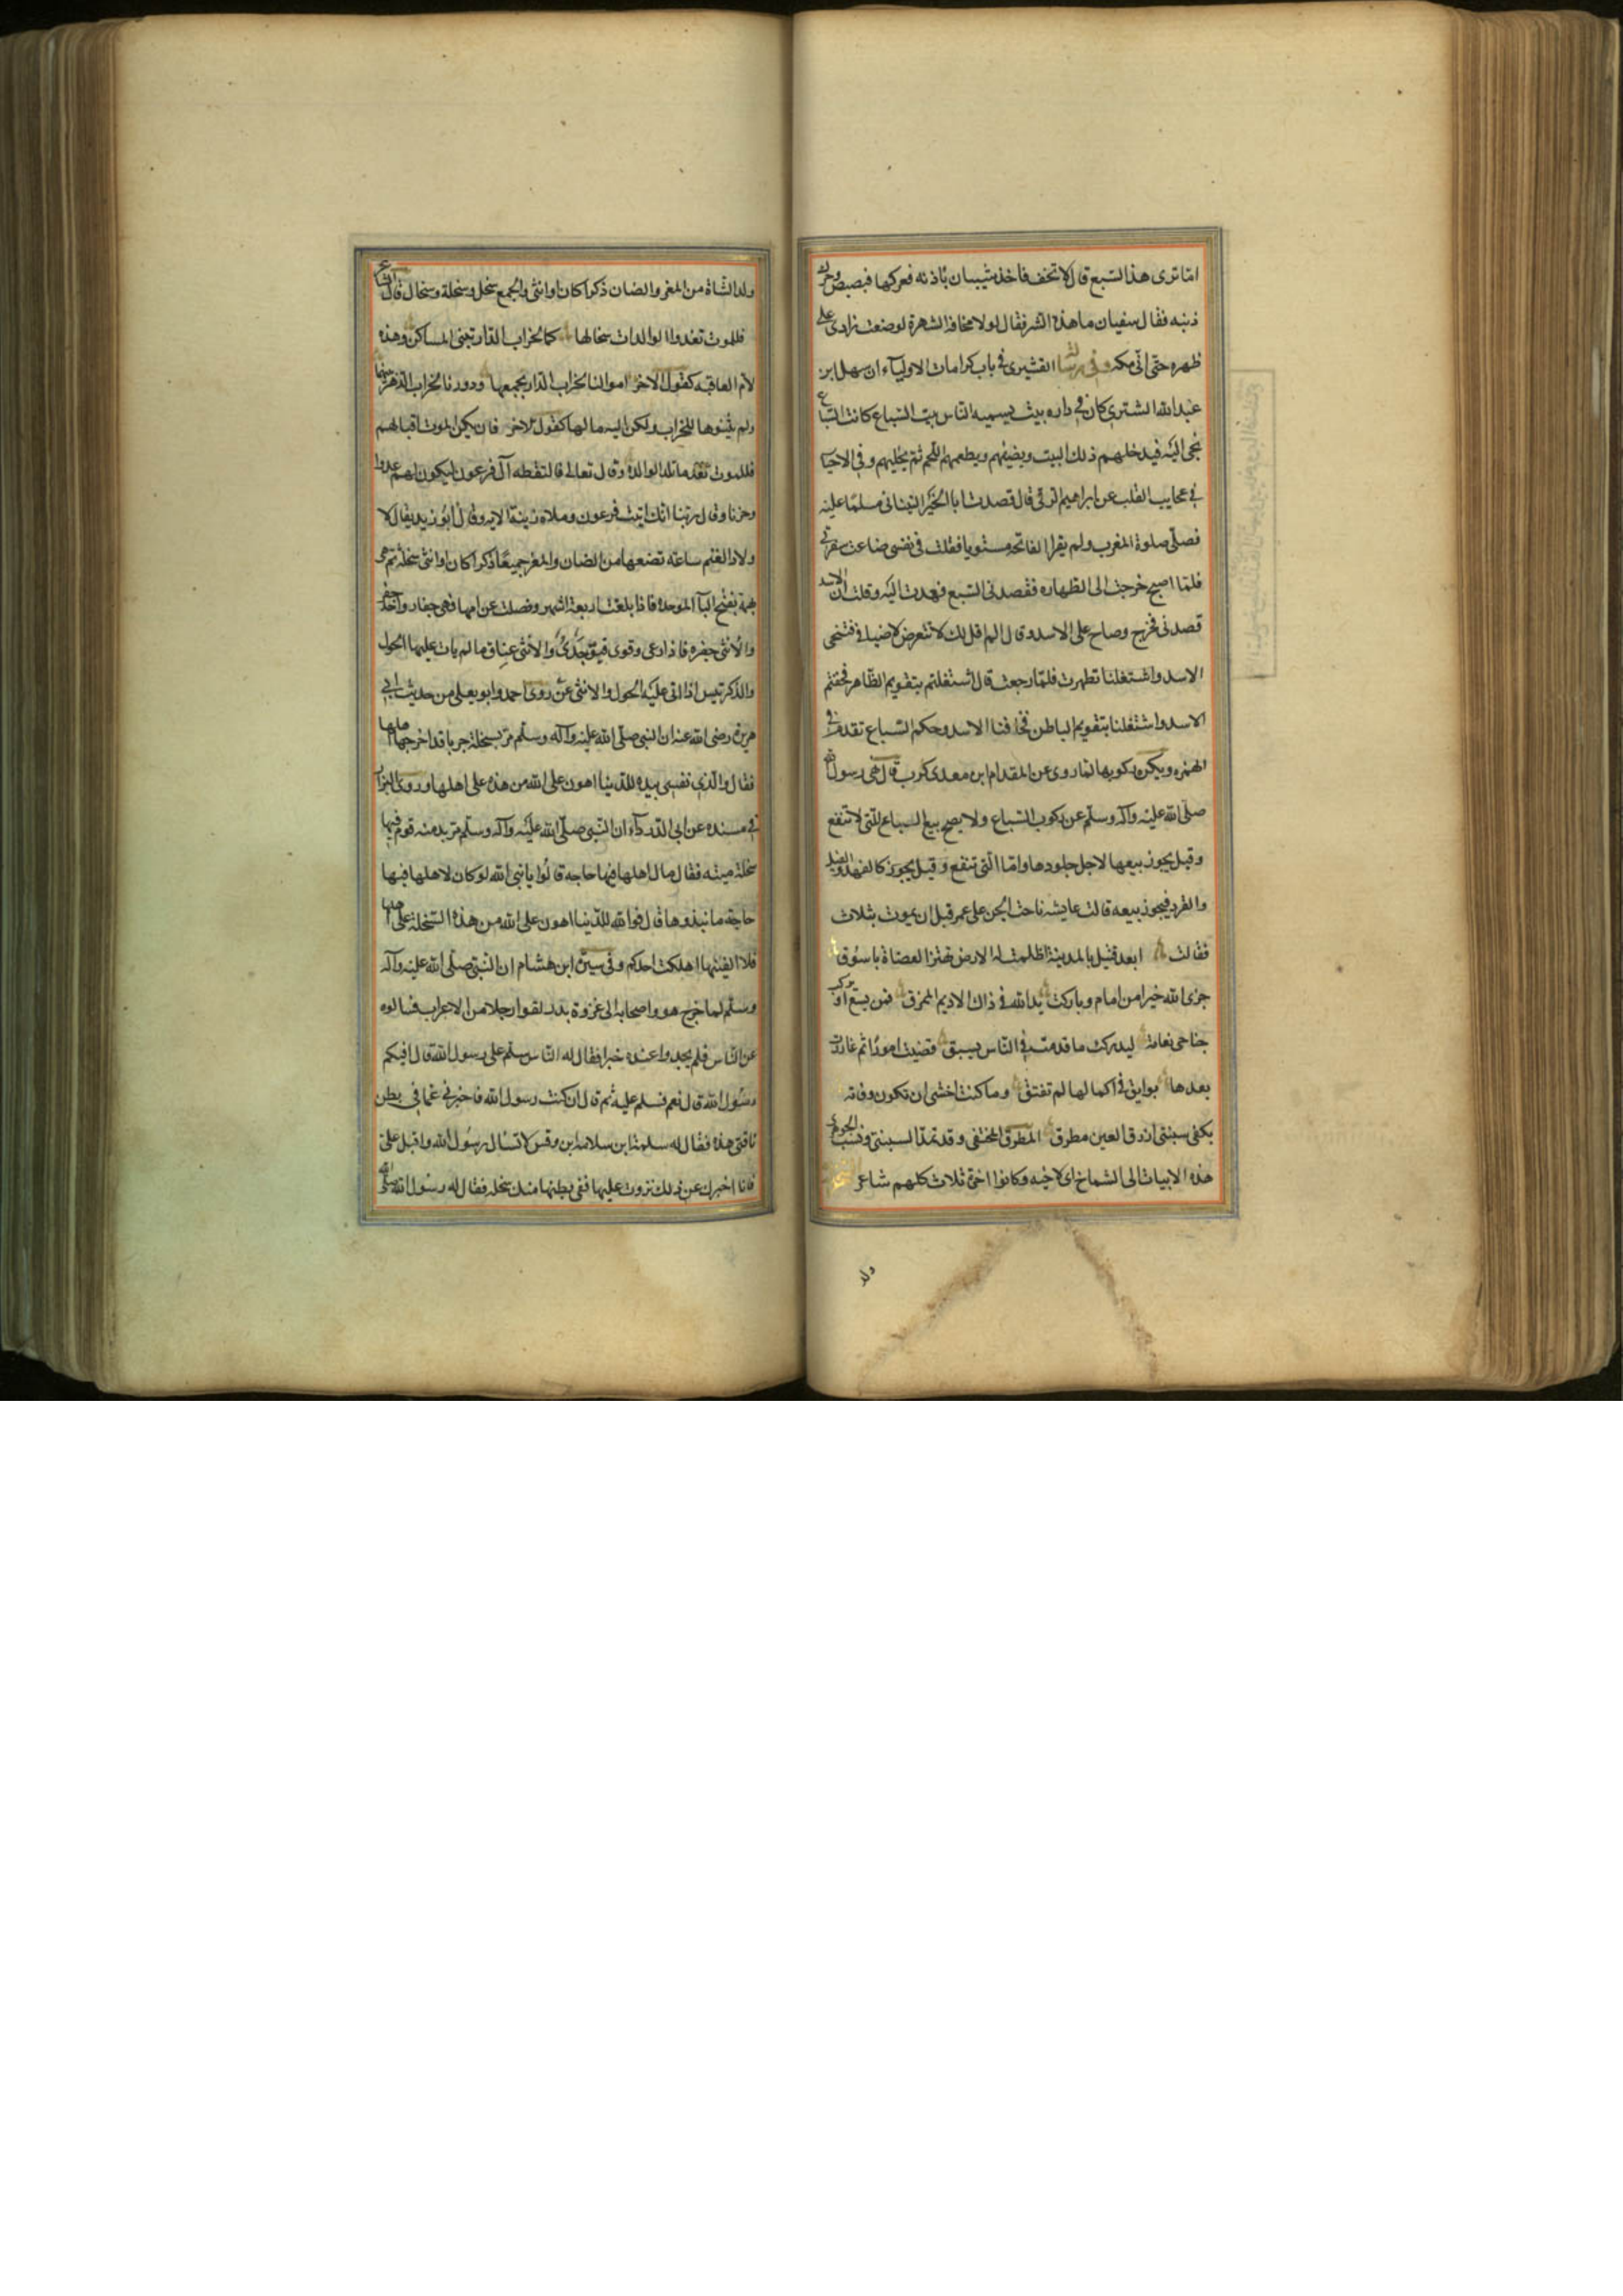 اما ترى هذا السبع قال لا تخف فاخذ شيبان باذنه فعركها فبصبص وحرك
ذنبه فقال سفيان ما هذه الشهرة فقال لولا مخافة الشهرة لوضعت زادى على
ظهره حتى اتى مكة وفى رسالة القشيرى فى باب كرامات الاولياء ان سهل ابن
عبد الله التسترى كان فى داره بيت يسميه الناس بيت السباع كانت السباع
تجى اليه فيدخلهم ذلك البيت ويضيفهم ويطعمهم اللحم ثم يخليهم وفى الاحيا
فى عجايب القلب عن ابراهيم الرقى قال قصدت ابا الخير التيناتى مسلما عليه
فصلى صلوة المغرب ولم يقرا الفاتحة مستويا فقلت فى نفسى ضاعت سفرتى
فلما اصبح خرجت الى الطهاره فقصدنى السبع فعدت اليه وقلت ان الاسد
قصدنى فخرج وصاح على الاسد وقال الم اقل لك لا تتعرض لاضيافى فتنحى
الاسد واشتغلنا تطهرت فلما رجعت قال اشتغلتم بتقويم الظاهر فخفتم
الاسد واشتغلنا بتقويم الباطن فخافنا الاسد وحكم السباع تقدم فى
الهمزه ويكره ركوبها لما روى عن المقدام ابن معدى كرب قال نهى رسول الله
صلى الله عليه وآله وسلم عن ركوب السباع ولا يصح بيع السباع التى لا تنفع
وقيل يجوز بيعها لاجل جلودها واما التى تنفع وقيل يجوز كالفهد والفيل
والقرد فيجوز بيعه قالت عايشه ناحت الجن على عمر قبل ان يموت بثلاث
فقالت ابعد قتيل بالمدينة اظلمت له الارض تهتز العضاة باسوق
جزى الله خيرا من امام وباركت يد الله فى ذاك الاديم الممزق فمن يسع او يركب
جناحى نعامة ليدركت ما قدمت فى الناس يسبق قضيت امورا ثم غادرت
بعدها بوايق فى اكمالها لم تفتق وما كنت اخشى ان تكون وفاته
بكفى سبنتى ازرق العين مطرق المطرق المختفى وقد تمدا لسبنتى ونسب الجوهرى
هذه الابيات الى الشماخ اى لاخيه وكانوا اخوة ثلاث كلهم شاعر
ولد
ولد الشاة من المغر والضان ذكرا كان او انثى والجمع سخل وسخلة وسخال قال الشاعر
فللموت تغدوا الوالدات سخالها كما لخراب الدار تبنى المساكن وهذه
لام العاقبه كقول الاخر اموالنا لخراب الدار نجمعها ودورنا لخراب الدهر نبنيها
ولم يبنوها للخراب ولكن اليه مالها كقول الاخر فان يكن الموت اقبالهم
فللموت تغد ما تلد الوالدة وقال تعالى فالتقطه آل فرعون ليكون لهم عدوا
وحزنا وقال ربنا انك اتيت فرعون وملاه زينة الايه وقال ابو زيد يقال لا
ولاد الغنم ساعة تضعها من الضان والمغر جميعا ذكرا كان او انثى سخلة ثم هى
بهمة بفتح البآ الموحدة فاذا بلغت اربعة اشهر وفصلت عن امها فهى جفار واحد جفر
والانثى جفره فاذا رعى وقوى فهو جدى والانثى عناق ما لم يات عليها الحول
والذكر تيس اذا اتى عليه الحول والانثى عنز روى احمد وابو يعلى من حديث ابى
هريرة رضى الله عنه ان النبى صلى الله عليه وآله وسلم مر بسخلة جربا قد اخرجها اهلها
فقال والذى نفسى بيده للدنيا اهون على الله من هذه على اهلها وروى البزار
فى مسنده عن ابى الدرداء ان النبى صلى الله عليه وآله وسلم مر بدمنه قوم فيها
سخلة ميته فقال مال اهلها فيها حاجه قالوا يا نبى الله لو كان لاهلها فيها
حاجة ما نبذوها قال فوالله للدنيا اهون على الله من هذه السخلة على اهلها
فلا الفينها اهلكت احدكم وفى سيرة ابن هشام ان النبى صلى الله عليه وآله
وسلم لما خرج هو واصحابه الى غزوة بدر لقوا رجلا من الاعراب فسالوه
عن الناس فلم يجدوا عنده خبرا فقال له الناس سلم على رسول الله قال افيكم
رسول الله قال نعم فسلم عليه ثم قال ان كنت رسول الله فاخبرنى عما فى بطن
ناقتى هذه فقال له سلمة ابن سلامه ابن وقس لا تسال رسول الله واقبل على
فانا اخبرك عن ذلك نزوت عليها ففى بطنها منك سخله فقال له رسول الله صلى الله